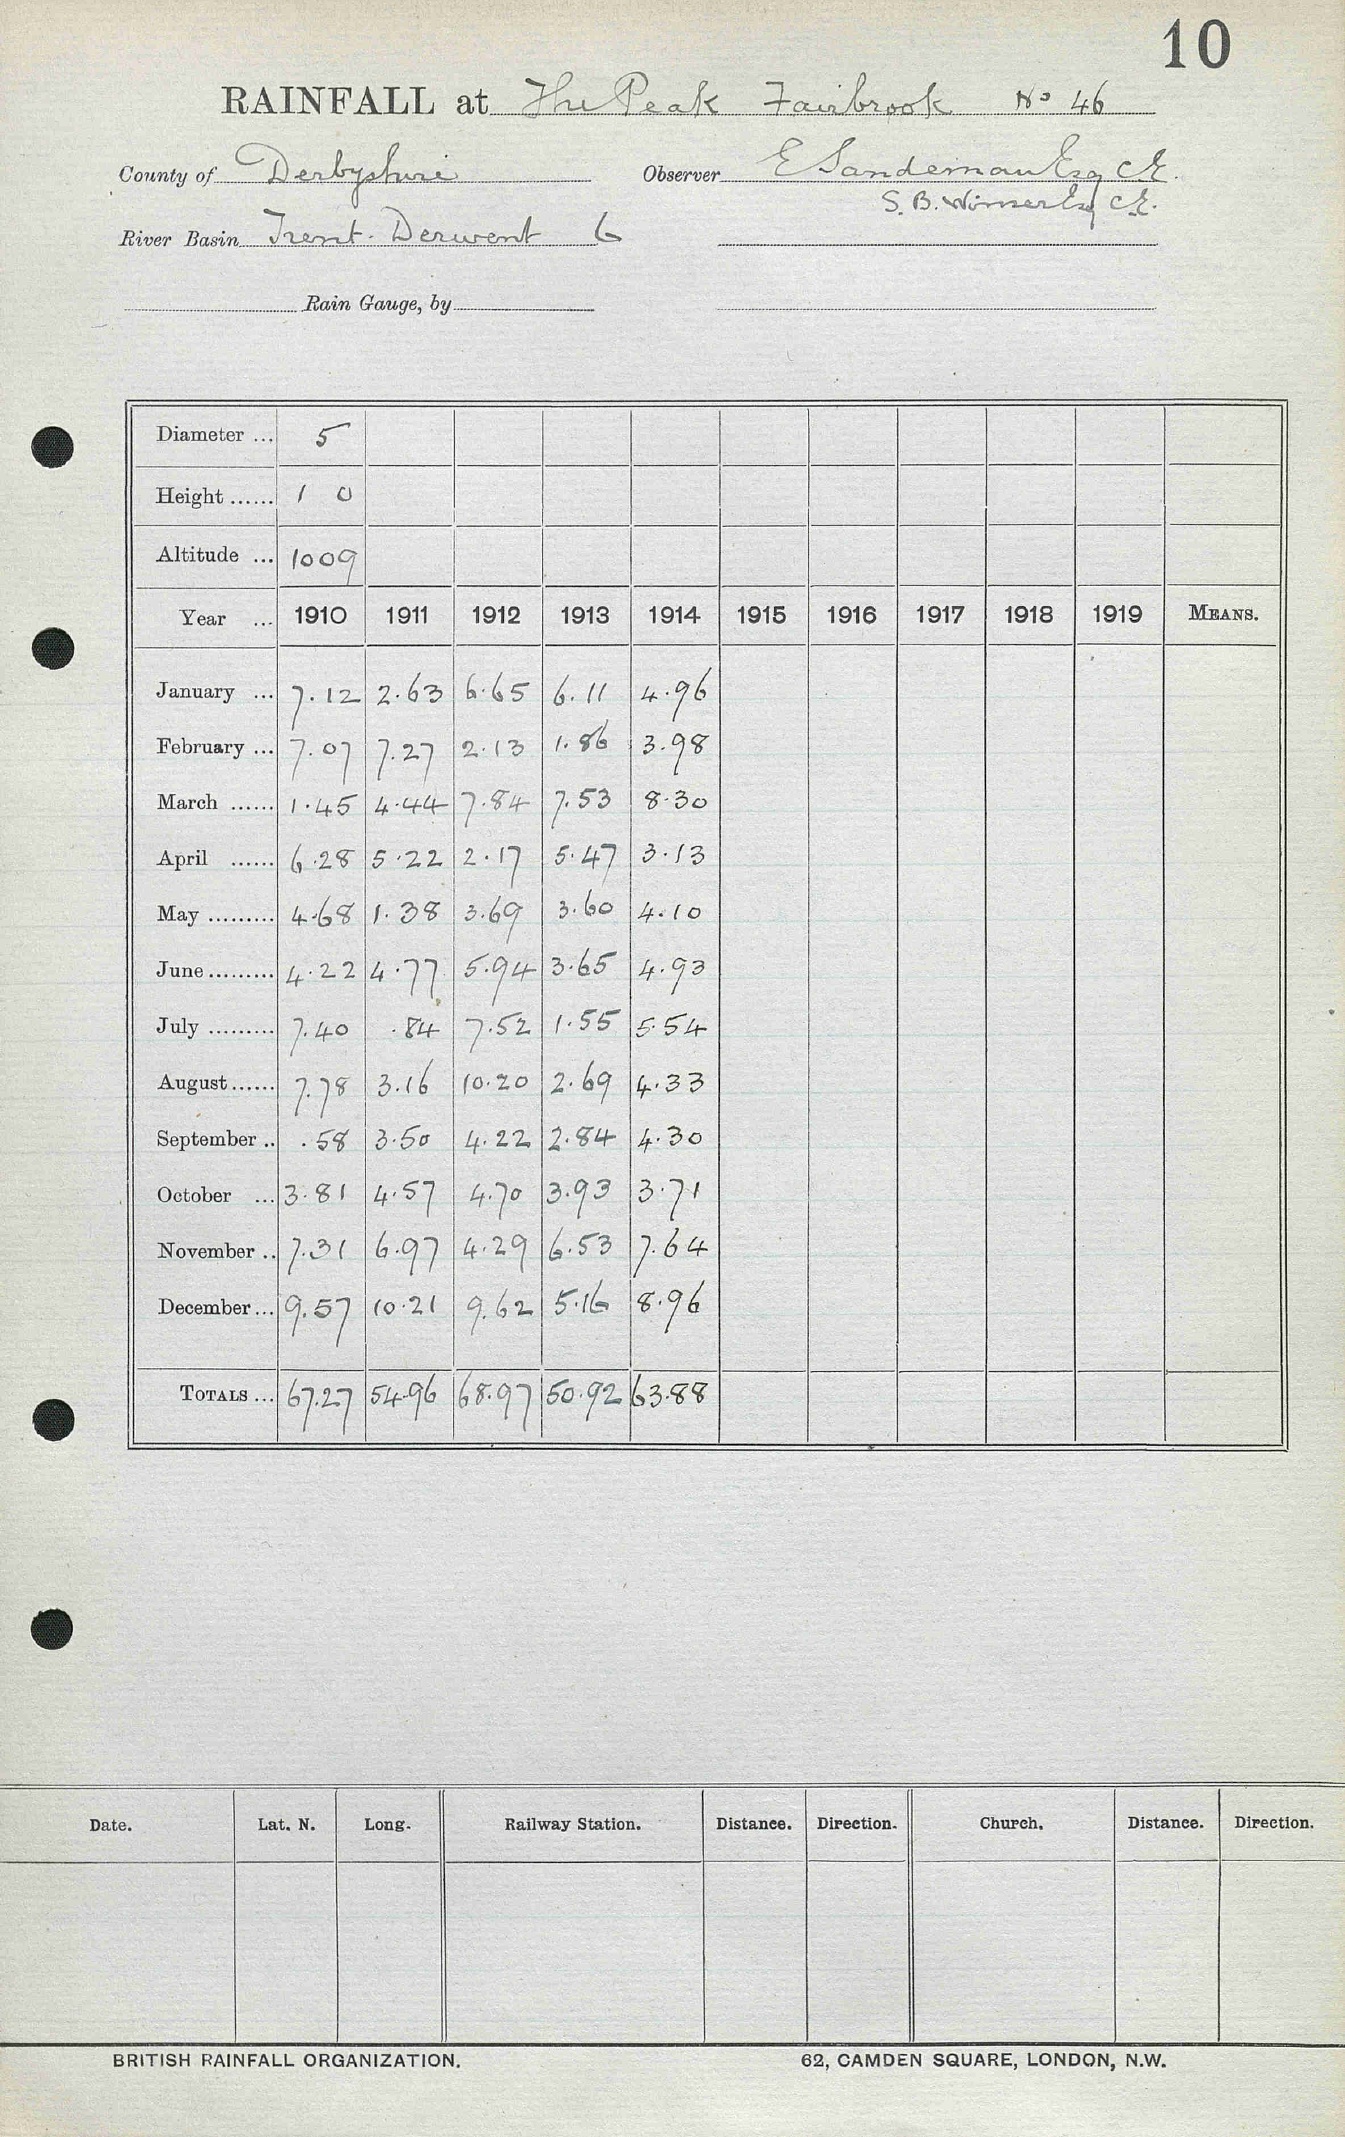 10
RAINFALL at The Peak Fairbrook No 46
County of Derbyshire Observer E Sandeman Esq C.E.
S. B. Winser Esq C.E.
River Basin Trent. Derwent 6
Rain Gauge, by
Diameter ... 5
Height ...... 1 0
Altitude ... 1009
Year ... 1910 1911 1912 1913 1914 1915 1916 1917 1918 1919 MEANS.
January ... 7.12 2.63 6.65 6.11 4.96
February ... 7.07 7.27 2.13 1.86 3.98
March ...... 1.45 4.44 7.84 7.53 8.30
April ...... 6.28 5.22 2.17 5.47 3.13
May ......... 4.68 1.38 3.69 3.60 4.10
June ......... 4.22 4.77 5.94 3.65 4.93
July ......... 7.40 .84 7.52 1.55 5.54
August ...... 7.78 3.16 10.20 2.69 4.33
September .. .58 3.50 4.22 2.84 4.30
October ... 3.81 4.57 4.70 3.93 3.71
November .. 7.31 6.97 4.29 6.53 7.64
December ... 9.57 10.21 9.62 5.16 8.96
TOTALS ... 67.27 54.96 68.97 50.92 63.88
Date. Lat. N. Long. Railway Station. Distance. Direction. Church. Distance. Direction.
BRITISH RAINFALL ORGANIZATION. 62, CAMDEN SQUARE, LONDON, N.W.